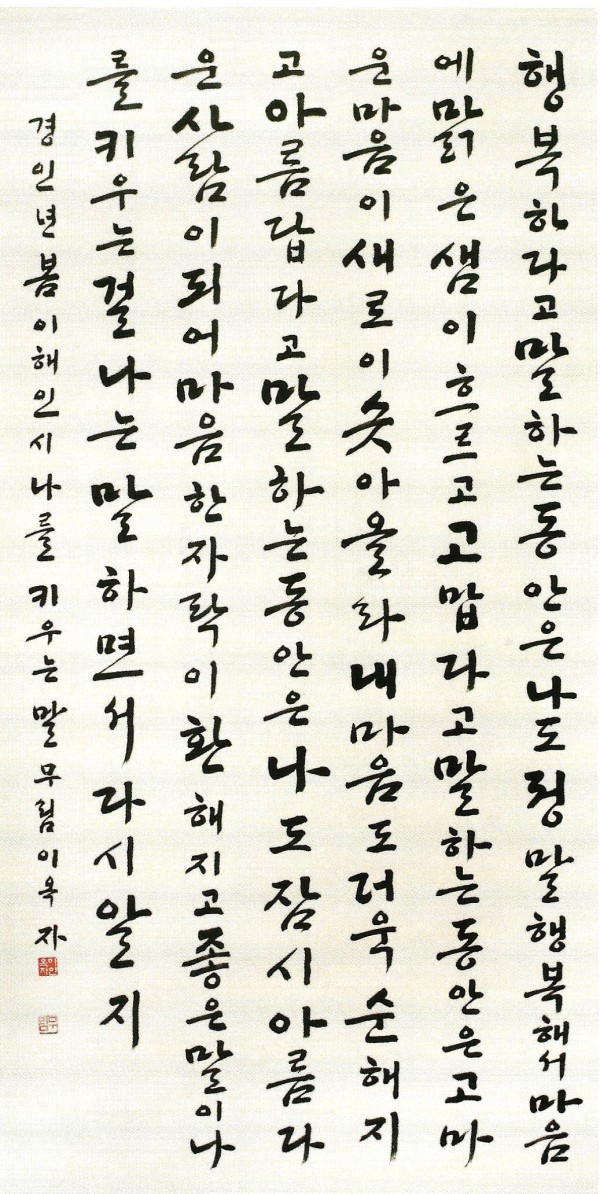 행복하다고말하는동안은나도정말행복해서마음
에맑은샘이흐르고고맙다고말하는동안은고마
운마음이새로이솟아올라내마음도더욱순해지
고아름답다고말하는동안은나도잠시아름다
운사람이되어마음한자락이환해지고좋은말이나
를키우는걸나는말하면서다시알지
경인년봄이해인시나를키우는말무림이옥자